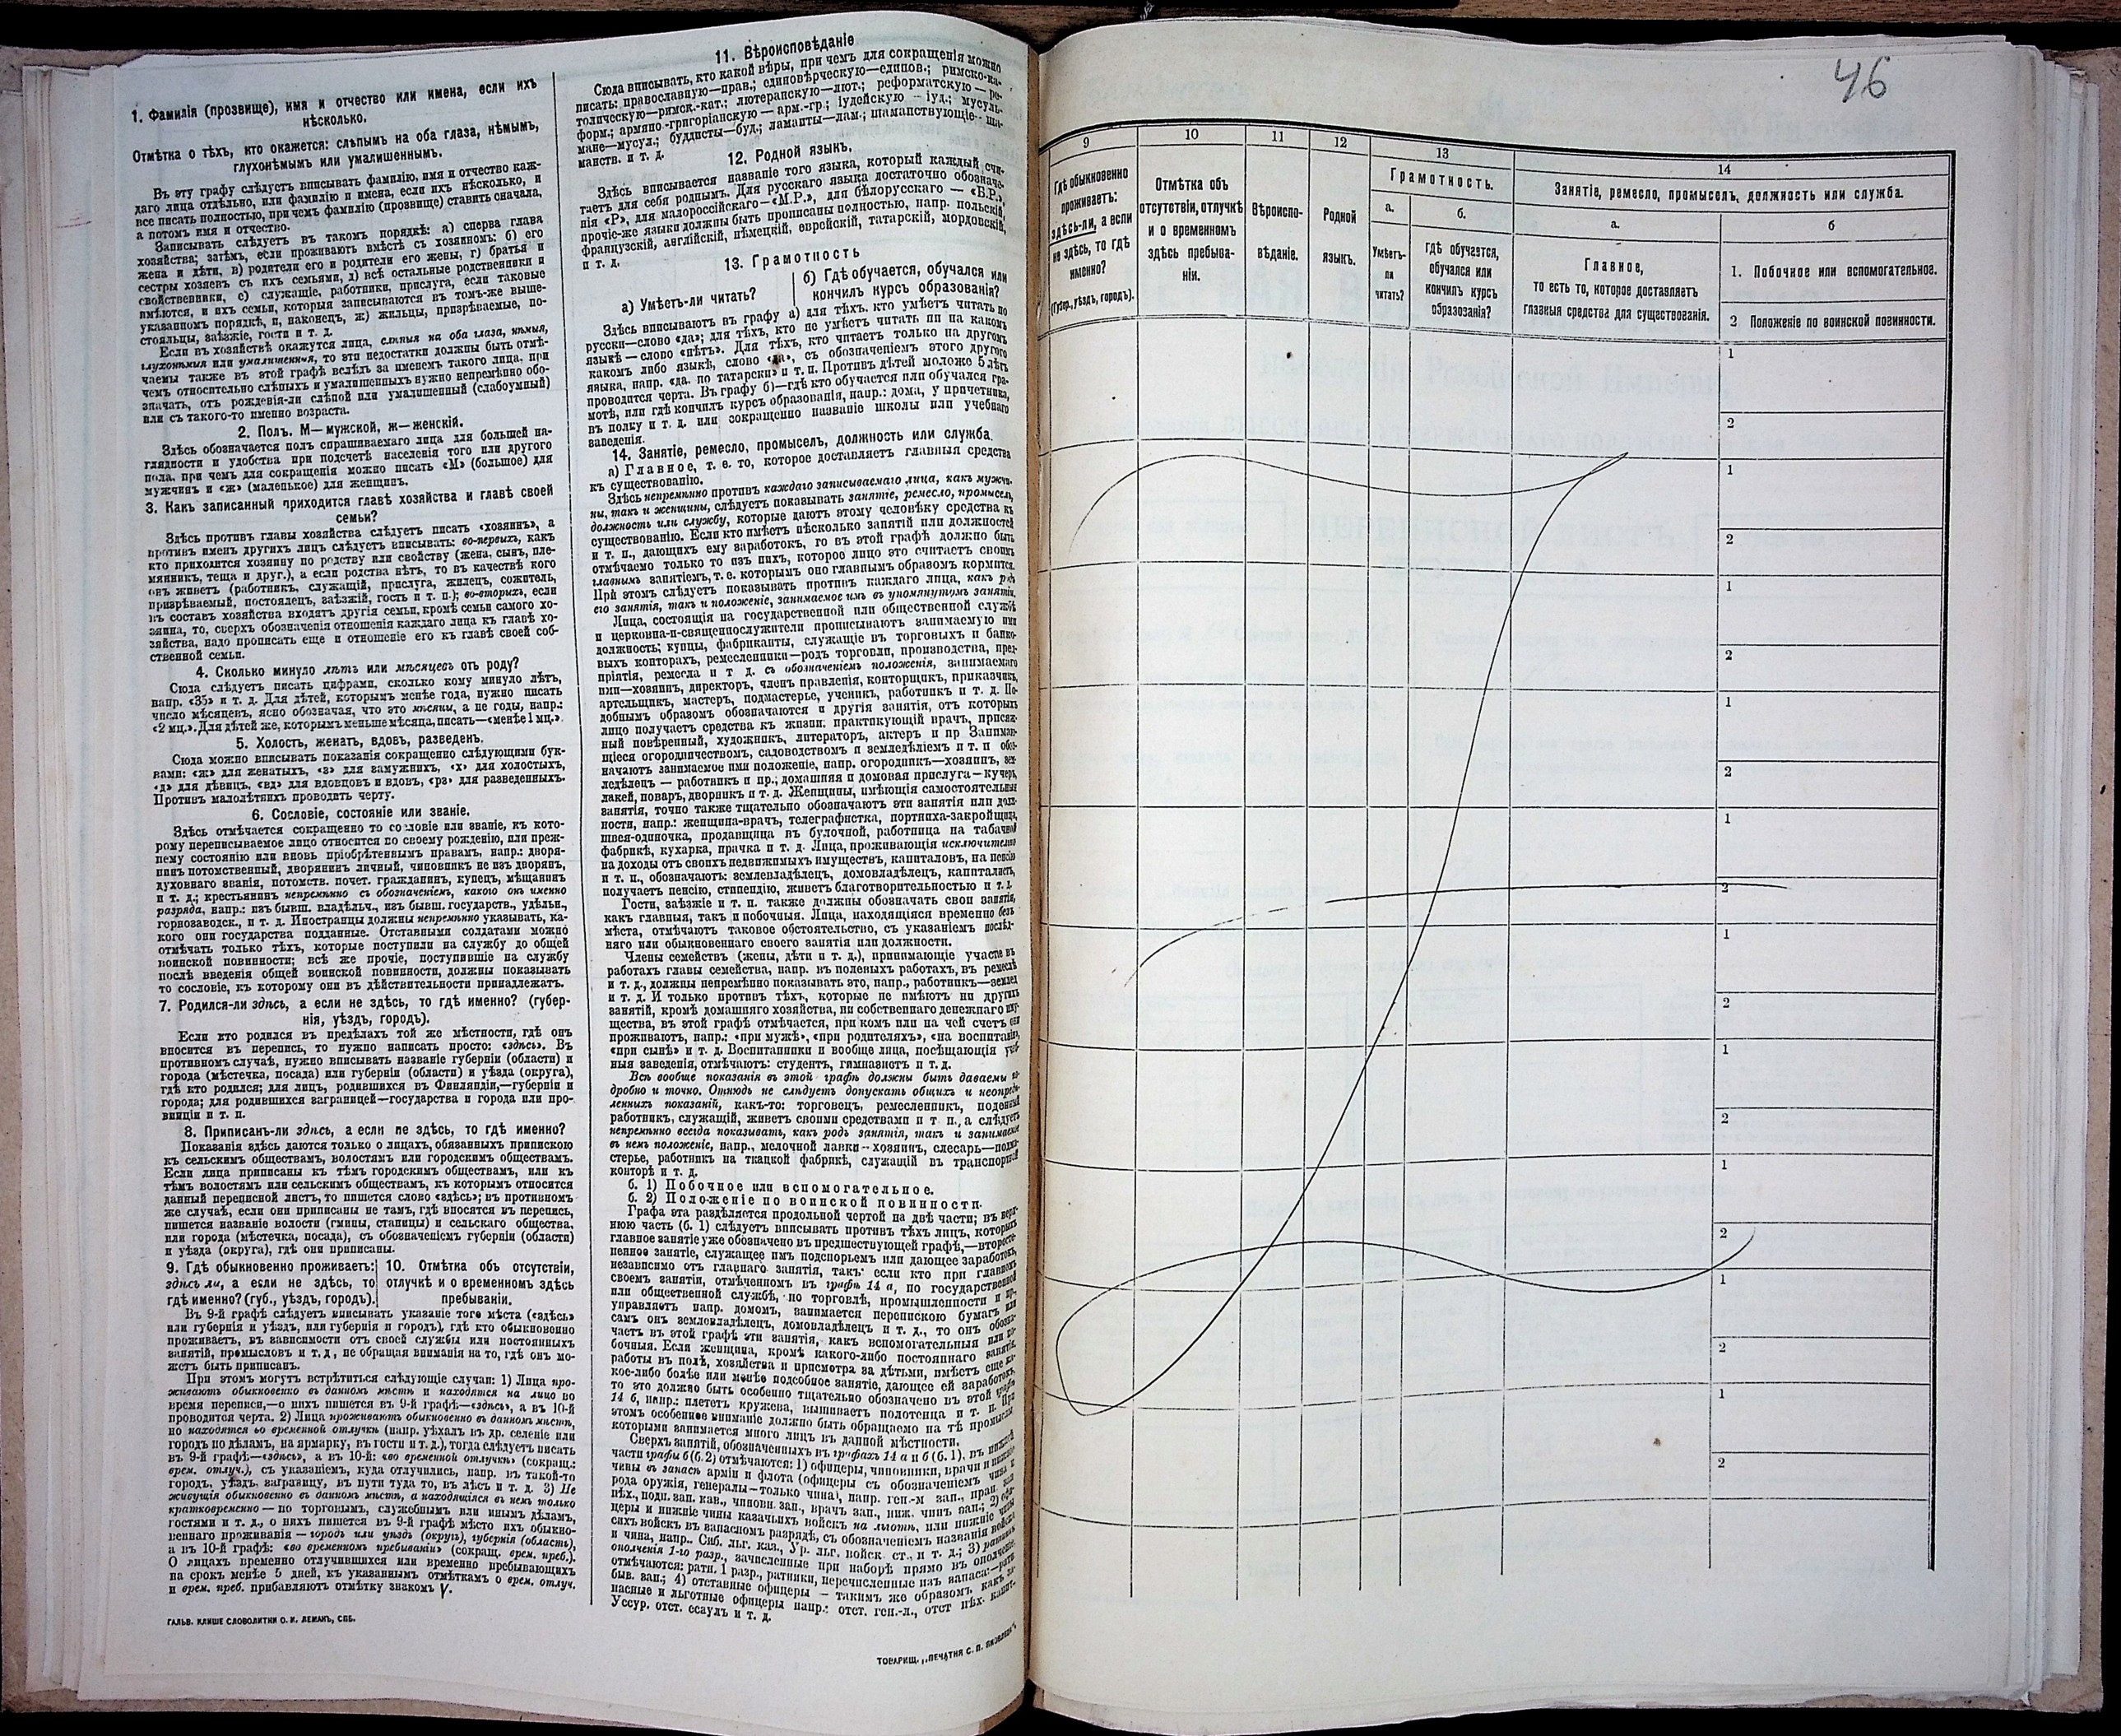 1. Фамилія (прозвище), имя и отчество или имена, если ихъ
нѣсколько.
Отмѣтка о тѣхъ, кто окажется: слѣпымъ на оба глаза, нѣмымъ,
глухонѣмымъ или умалишеннымъ.
Въ эту графу слѣдуетъ вписывать фамилію, имя и отчество каж-
даго лица отдѣльно, или фамилію и имена, если ихъ нѣсколько, и
все писать полностью, при чемъ фамилію (прозвище) ставить сначала,
а потомъ имя и отчество.
Записывать слѣдуетъ въ такомъ порядкѣ: а) сперва глава
хозяйства; затѣмъ, если проживаютъ вмѣстѣ съ хозяиномъ: б) его
жена и дѣти, в) родители его и родители его жены, г) братья и
сестры хозяевъ съ ихъ семьями, д) всѣ остальные родственники и
свойственники, е) служащіе, работники, прислуга, если таковые
имѣются, и ихъ семьи, которыя записываются въ томъ-же выше-
указанномъ порядкѣ, и, наконецъ, ж) жильцы, призрѣваемые, по-
стояльцы, заѣзжіе, гости и т. д.
Если въ хозяйствѣ окажутся лица, слѣпыя на оба глаза, нѣмыя,
глухонѣмыя или умалишенныя, то эти недостатки должны быть отмѣ-
чаемы также въ этой графѣ вслѣдъ за именемъ такого лица, при
чемъ относительно слѣпыхъ и умалишенныхъ нужно непремѣнно обо-
значать, отъ рожденія-ли слѣпой или умалишенный (слабоумный)
или съ такого-то именно возраста.
2. Полъ. М—мужской, ж—женскій.
Здѣсь обозначается полъ спрашиваемаго лица для большей на-
глядности и удобства при подсчетѣ населенія того или другого
пола, при чемъ для сокращенія можно писать «М» (большое) для
мужчинъ и «ж» (маленькое) для женщинъ.
3. Какъ записанный приходится главѣ хозяйства и главѣ своей
семьи?
Здѣсь противъ главы хозяйства слѣдуетъ писать «хозяинъ», а
противъ именъ другихъ лицъ слѣдуетъ вписывать: во-первыхъ, какъ
кто приходится хозяину по родству или свойству (жена, сынъ, пле-
мянникъ, теща и друг.), а если родства нѣтъ, то въ качествѣ кого
онъ живетъ (работникъ, служащій, прислуга, жилецъ, сожитель,
призрѣваемый, постоялецъ, заѣзжій, гость и т. п.); во-вторыхъ, если
въ составъ хозяйства входятъ другія семьи, кромѣ семьи самого хо-
зяина, то, сверхъ обозначенія отношенія каждаго лица къ главѣ хо-
зяйства, надо прописать еще и отношеніе его къ главѣ своей соб-
ственной семьи.
4. Сколько минуло лѣтъ или мѣсяцевъ отъ роду?
Сюда слѣдуетъ писать цифрами, сколько кому минуло лѣтъ,
напр. «35» и т. д. Для дѣтей, которымъ менѣе года, нужно писать
число мѣсяцевъ, ясно обозначая, что это мѣсяцы, а не годы, напр.:
«2 мц.». Для дѣтей же, которымъ меньше мѣсяца, писать—«менѣе 1 мц.».
5. Холостъ, женатъ, вдовъ, разведенъ.
Сюда можно вписывать показанія сокращенно слѣдующими бук-
вами: «ж» для женатыхъ, «з» для замужнихъ, «х» для холостыхъ,
«д» для дѣвицъ, «вд» для вдовцовъ и вдовъ, «рз» для разведенныхъ.
Противъ малолѣтнихъ проводить черту.
6. Сословіе, состояніе или званіе.
Здѣсь отмѣчается сокращенно то сословіе или званіе, къ кото-
рому переписываемое лицо относится по своему рожденію, или преж-
нему состоянію или вновь пріобрѣтеннымъ правамъ, напр.: дворя-
нинъ потомственный, дворянинъ личный, чиновникъ не изъ дворянъ,
духовнаго званія, потомств. почет. гражданинъ, купецъ, мѣщанинъ
и т. д.; крестьянинъ непремѣнно съ обозначеніемъ, какого онъ именно
разряда, напр.: изъ бывш. владѣльч., изъ бывш. государств., удѣльн.,
горнозаводск., и т. д. Иностранцы должны непремѣнно указывать, ка-
кого они государства подданные. Отставными солдатами можно
отмѣчать только тѣхъ, которые поступили на службу до общей
воинской повинности; всѣ же прочіе, поступившіе на службу
послѣ введенія общей воинской повинности, должны показывать
то сословіе, къ которому они въ дѣйствительности принадлежатъ.
7. Родился-ли здѣсь, а если не здѣсь, то гдѣ именно? (губер-
нія, уѣздъ, городъ).
Если кто родился въ предѣлахъ той же мѣстности, гдѣ онъ
вносится въ перепись, то нужно написать просто: «здѣсь». Въ
противномъ случаѣ, нужно вписывать названіе губерніи (области) и
города (мѣстечка, посада) или губерніи (области) и уѣзда (округа),
гдѣ кто родился; для лицъ, родившихся въ Финляндіи,—губерніи и
города; для родившихся заграницей—государства и города или про-
винціи и т. п.
8. Приписанъ-ли здѣсь, а если не здѣсь, то гдѣ именно?
Показанія здѣсь даются только о лицахъ, обязанныхъ припискою
къ сельскимъ обществамъ, волостямъ или городскимъ обществамъ.
Если лица приписаны къ тѣмъ городскимъ обществамъ, или къ
тѣмъ волостямъ или сельскимъ обществамъ, къ которымъ относится
данный переписной листъ, то пишется слово «здѣсь»; въ противномъ
же случаѣ, если они приписаны не тамъ, гдѣ вносятся въ перепись,
пишется названіе волости (гмины, станицы) и сельскаго общества,
или города (мѣстечка, посада), съ обозначеніемъ губерніи (области)
и уѣзда (округа), гдѣ они приписаны.
9. Гдѣ обыкновенно проживаетъ:
здѣсь ли, а если не здѣсь, то
гдѣ именно? (губ., уѣздъ, городъ).
10. Отмѣтка объ отсутствіи,
отлучкѣ и о временномъ здѣсь
пребываніи.
Въ 9-й графѣ слѣдуетъ вписывать указаніе того мѣста («здѣсь»
или губернія и уѣздъ, или губернія и городъ), гдѣ кто обыкновенно
проживаетъ, въ зависимости отъ своей службы или постоянныхъ
занятій, промысловъ и т. д., не обращая вниманія на то, гдѣ онъ мо-
жетъ быть приписанъ.
При этомъ могутъ встрѣтиться слѣдующіе случаи: 1) Лица про-
живаютъ обыкновенно въ данномъ мѣстѣ и находятся на лицо во
время переписи,—о нихъ пишется въ 9-й графѣ—«здѣсь», а въ 10-й
проводится черта. 2) Лица проживаютъ обыкновенно въ данномъ мѣстѣ,
но находятся во временной отлучкѣ (напр. уѣхалъ въ др. селеніе или
городъ по дѣламъ, на ярмарку, въ гости и т. д.), тогда слѣдуетъ писать
въ 9-й графѣ—«здѣсь», а въ 10-й: «во временной отлучкѣ» (сокращ.:
врем. отлуч.), съ указаніемъ, куда отлучились, напр. въ такой-то
городъ, уѣздъ, заграницу, въ пути туда то, въ лѣсъ и т. д. 3) Не
живущія обыкновенно въ данномъ мѣстѣ, а находящіяся въ немъ только
кратковременно—по торговымъ, служебнымъ или инымъ дѣламъ,
гостями и т. д., о нихъ пишется въ 9-й графѣ мѣсто ихъ обыкно-
веннаго проживанія—городъ или уѣздъ (округъ), губернія (область),
а въ 10-й графѣ: «во временномъ пребываніи» (сокращ. врем. преб.).
О лицахъ временно отлучившихся или временно пребывающихъ
на срокъ менѣе 5 дней, къ указаннымъ отмѣткамъ о врем. отлуч.
и врем. преб. прибавляютъ отмѣтку знакомъ V.
ГАЛЬВ. КЛИШЕ СЛОВОЛИТНИ О. И. ЛЕМАНЪ, СПБ.
11. Вѣроисповѣданіе
Сюда вписывать, кто какой вѣры, при чемъ для сокращенія можно
писать: православную—прав.; единовѣрческую—единов.; римско-ка-
толическую—римск.-кат.; лютеранскую—лют.; реформатскую—ре-
форм.; армяно-григоріанскую—арм.-гр.; іудейскую—іуд.; мусуль-
мане—мусул.; буддисты—буд.; ламаиты—лам.; шаманствующіе—ша-
манств. и т. д.
12. Родной языкъ.
Здѣсь вписывается названіе того языка, который каждый счи-
таетъ для себя роднымъ. Для русскаго языка достаточно обозначе-
нія «Р», для малороссійскаго—«М.Р.», для бѣлорусскаго—«Б.Р.»,
прочіе-же языки должны быть прописаны полностью, напр. польскій,
французскій, англійскій, нѣмецкій, еврейскій, татарскій, мордовскій,
и т. д.
13. Грамотность
а) Умѣетъ-ли читать?
б) Гдѣ обучается, обучался или
кончилъ курсъ образованія?
Здѣсь вписываютъ въ графу а) для тѣхъ, кто умѣетъ читать по
русски—слово «да»; для тѣхъ, кто не умѣетъ читать ни на какомъ
языкѣ—слово «нѣтъ». Для тѣхъ, кто читаетъ только на другомъ
какомъ либо языкѣ, слово «да», съ обозначеніемъ этого другого
языка, напр. «да, по татарски» и т. п. Противъ дѣтей моложе 5 лѣтъ
проводится черта. Въ графу б)—гдѣ кто обучается или обучался гра-
мотѣ, или гдѣ кончилъ курсъ образованія, напр.: дома, у причетника,
въ полку и т. д. или сокращенно названіе школы или учебнаго
заведенія.
14. Занятіе, ремесло, промыселъ, должность или служба.
а) Главное, т. е. то, которое доставляетъ главныя средства
къ существованію.
Здѣсь непремѣнно противъ каждаго записываемаго лица, какъ мужчи-
ны, такъ и женщины, слѣдуетъ показывать занятіе, ремесло, промыселъ,
должность или службу, которые даютъ этому человѣку средства къ
существованію. Если кто имѣетъ нѣсколько занятій или должностей
и т. п., дающихъ ему заработокъ, то въ этой графѣ должно быть
отмѣчаемо только то изъ нихъ, которое лицо это считаетъ своимъ
главнымъ занятіемъ, т. е. которымъ оно главнымъ образомъ кормится.
При этомъ слѣдуетъ показывать противъ каждаго лица, какъ родъ
его занятія, такъ и положеніе, занимаемое имъ въ упомянутомъ занятіи.
Лица, состоящія на государственной или общественной службѣ
и церковно-и-священнослужители прописываютъ занимаемую ими
должность; купцы, фабриканты, служащіе въ торговыхъ и банко-
выхъ конторахъ, ремесленники—родъ торговли, производства, пред-
пріятія, ремесла и т д. съ обозначеніемъ положенія, занимаемаго
ими—хозяинъ, директоръ, членъ правленія, конторщикъ, приказчикъ,
артельщикъ, мастеръ, подмастерье, ученикъ, работникъ и т. д. По-
добнымъ образомъ обозначаются и другія занятія, отъ которыхъ
лицо получаетъ средства къ жизни: практикующій врачъ, присяж-
ный повѣренный, художникъ, литераторъ, актеръ и пр Занимаю-
щіеся огородничествомъ, садоводствомъ и земледѣліемъ и т. п обо-
значаютъ занимаемое ими положеніе, напр. огородникъ—хозяинъ, зем-
ледѣлецъ—работникъ и пр.; домашняя и домовая прислуга—кучеръ,
лакей, поваръ, дворникъ и т. д. Женщины, имѣющія самостоятельныя
занятія, точно также тщательно обозначаютъ эти занятія или долж-
ности, напр.: женщина-врачъ, телеграфистка, портниха-закройщица,
швея-одиночка, продавщица въ булочной, работница на табачной
фабрикѣ, кухарка, прачка и т. д. Лица, проживающія исключительно
на доходы отъ своихъ недвижимыхъ имуществъ, капиталовъ, на пенсію
и т. п., обозначаютъ: землевладѣлецъ, домовладѣлецъ, капиталистъ,
получаетъ пенсію, стипендію, живетъ благотворительностью и т. д.
Гости, заѣзжіе и т. п. также должны обозначать свои занятія,
какъ главныя, такъ и побочныя. Лица, находящіяся временно безъ
мѣста, отмѣчаютъ таковое обстоятельство, съ указаніемъ послѣд-
няго или обыкновеннаго своего занятія или должности.
Члены семействъ (жены, дѣти и т. д.), принимающіе участіе въ
работахъ главы семейства, напр. въ полевыхъ работахъ, въ ремеслѣ
и т. д., должны непремѣнно показывать это, напр., работникъ—землед
и т. д. И только противъ тѣхъ, которые не имѣютъ ни другихъ
занятій, кромѣ домашняго хозяйства, ни собственнаго денежнаго иму-
щества, въ этой графѣ отмѣчается, при комъ или на чей счетъ они
проживаютъ, напр.: «при мужѣ», «при родителяхъ», «на воспитаніи»,
«при сынѣ» и т. д. Воспитанники и вообще лица, посѣщающія учеб-
ныя заведенія, отмѣчаютъ: студентъ, гимназистъ и т. д.
Всѣ вообще показанія въ этой графѣ должны быть даваемы по-
дробно и точно. Отнюдь не слѣдуетъ допускать общихъ и неопредѣ-
ленныхъ показаній, какъ-то: торговецъ, ремесленникъ, поденный
работникъ, служащій, живетъ своими средствами и т п., а слѣдуетъ
непремѣнно всегда показывать, какъ родъ занятія, такъ и занимаемое
въ немъ положеніе, напр., мелочной лавки—хозяинъ, слесарь—подма-
стерье, работникъ на ткацкой фабрикѣ, служащій въ транспортной
конторѣ и т. д.
б. 1) Побочное или вспомогательное.
б. 2) Положеніе по воинской повинности.
Графа эта раздѣляется продольной чертой на двѣ части; въ верх-
нюю часть (б. 1) слѣдуетъ вписывать противъ тѣхъ лицъ, которыхъ
главное занятіе уже обозначено въ предшествующей графѣ,—второсте-
пенное занятіе, служащее имъ подспорьемъ или дающее заработокъ,
независимо отъ главнаго занятія, такъ: если кто при главномъ
своемъ занятіи, отмѣченномъ въ графѣ 14 а, по государственной
или общественной службѣ, по торговлѣ, промышленности и пр.,
управляетъ напр. домомъ, занимается перепискою бумагъ или
самъ онъ землевладѣлецъ, домовладѣлецъ и т. д., то онъ обозна-
чаетъ въ этой графѣ эти занятія, какъ вспомогательныя или по-
бочныя. Если женщина, кромѣ какого-либо постояннаго занятія,
работы въ полѣ, хозяйства и присмотра за дѣтьми, имѣетъ еще ка-
кое-либо болѣе или менѣе подсобное занятіе, дающее ей заработокъ,
то это должно быть особенно тщательно обозначено въ этой графѣ
14 б, напр.: плететъ кружева, вышиваетъ полотенца и т. п. При
этомъ особенное вниманіе должно быть обращаемо на тѣ промыслы
которыми занимается много лицъ въ данной мѣстности.
Сверхъ занятій, обозначенныхъ въ графахъ 14 а и б (б. 1), въ нижней
части графы б (б. 2) отмѣчаются: 1) офицеры, чиновники, врачи и нижніе
чины въ запасѣ арміи и флота (офицеры съ обозначеніемъ чина и
рода оружія, генералы—только чина), напр. ген.-м зап., прап. зап.
пѣх., подп. зап. кав., чиновн. зап., врачъ зап., ниж. чинъ зап.; 2) офи-
церы и нижніе чины казачьихъ войскъ на льготѣ, или нижніе чины
сихъ войскъ въ запасномъ разрядѣ, съ обозначеніемъ названія войска
и чина, напр.. Сиб. льг. каз., Ур. льг. войск. ст., и т. д.; 3) ратники
ополченія 1-го разр., зачисленные при наборѣ прямо въ ополченіе,
отмѣчаются: ратн. 1 разр., ратники, перечисленные изъ запаса:—ратн.
быв. зап.; 4) отставные офицеры—такимъ же образомъ, какъ за-
пасные и льготные офицеры напр.: отст. ген.-л., отст пѣх. капит.
Уссур. отст. есаулъ и т. д.
ТОВАРИЩ. „ПЕЧАТНЯ С. П. ЯКОВЛЕВА“.
46
9
10
11
12
13
14
Гдѣ обыкновенно
проживаетъ:
здѣсь-ли, а если
не здѣсь, то гдѣ
именно?
(Губ., уѣздъ, городъ).
Отмѣтка объ
отсутствіи, отлучкѣ
и о временномъ
здѣсь пребыва-
ніи.
Вѣроиспо-
вѣданіе.
Родной
языкъ.
Грамотность.
а.
Умѣетъ-
ли
читать?
б.
гдѣ обучается,
обучался или
кончилъ курсъ
образованія?
Занятіе, ремесло, промыселъ, должность или служба.
а.
Главное,
то есть то, которое доставляетъ
главныя средства для существованія.
б
1. Побочное или вспомогательное.
2 Положеніе по воинской повинности.
1
2
1
2
1
2
1
2
1
2
1
2
1
2
1
2
1
2
1
2